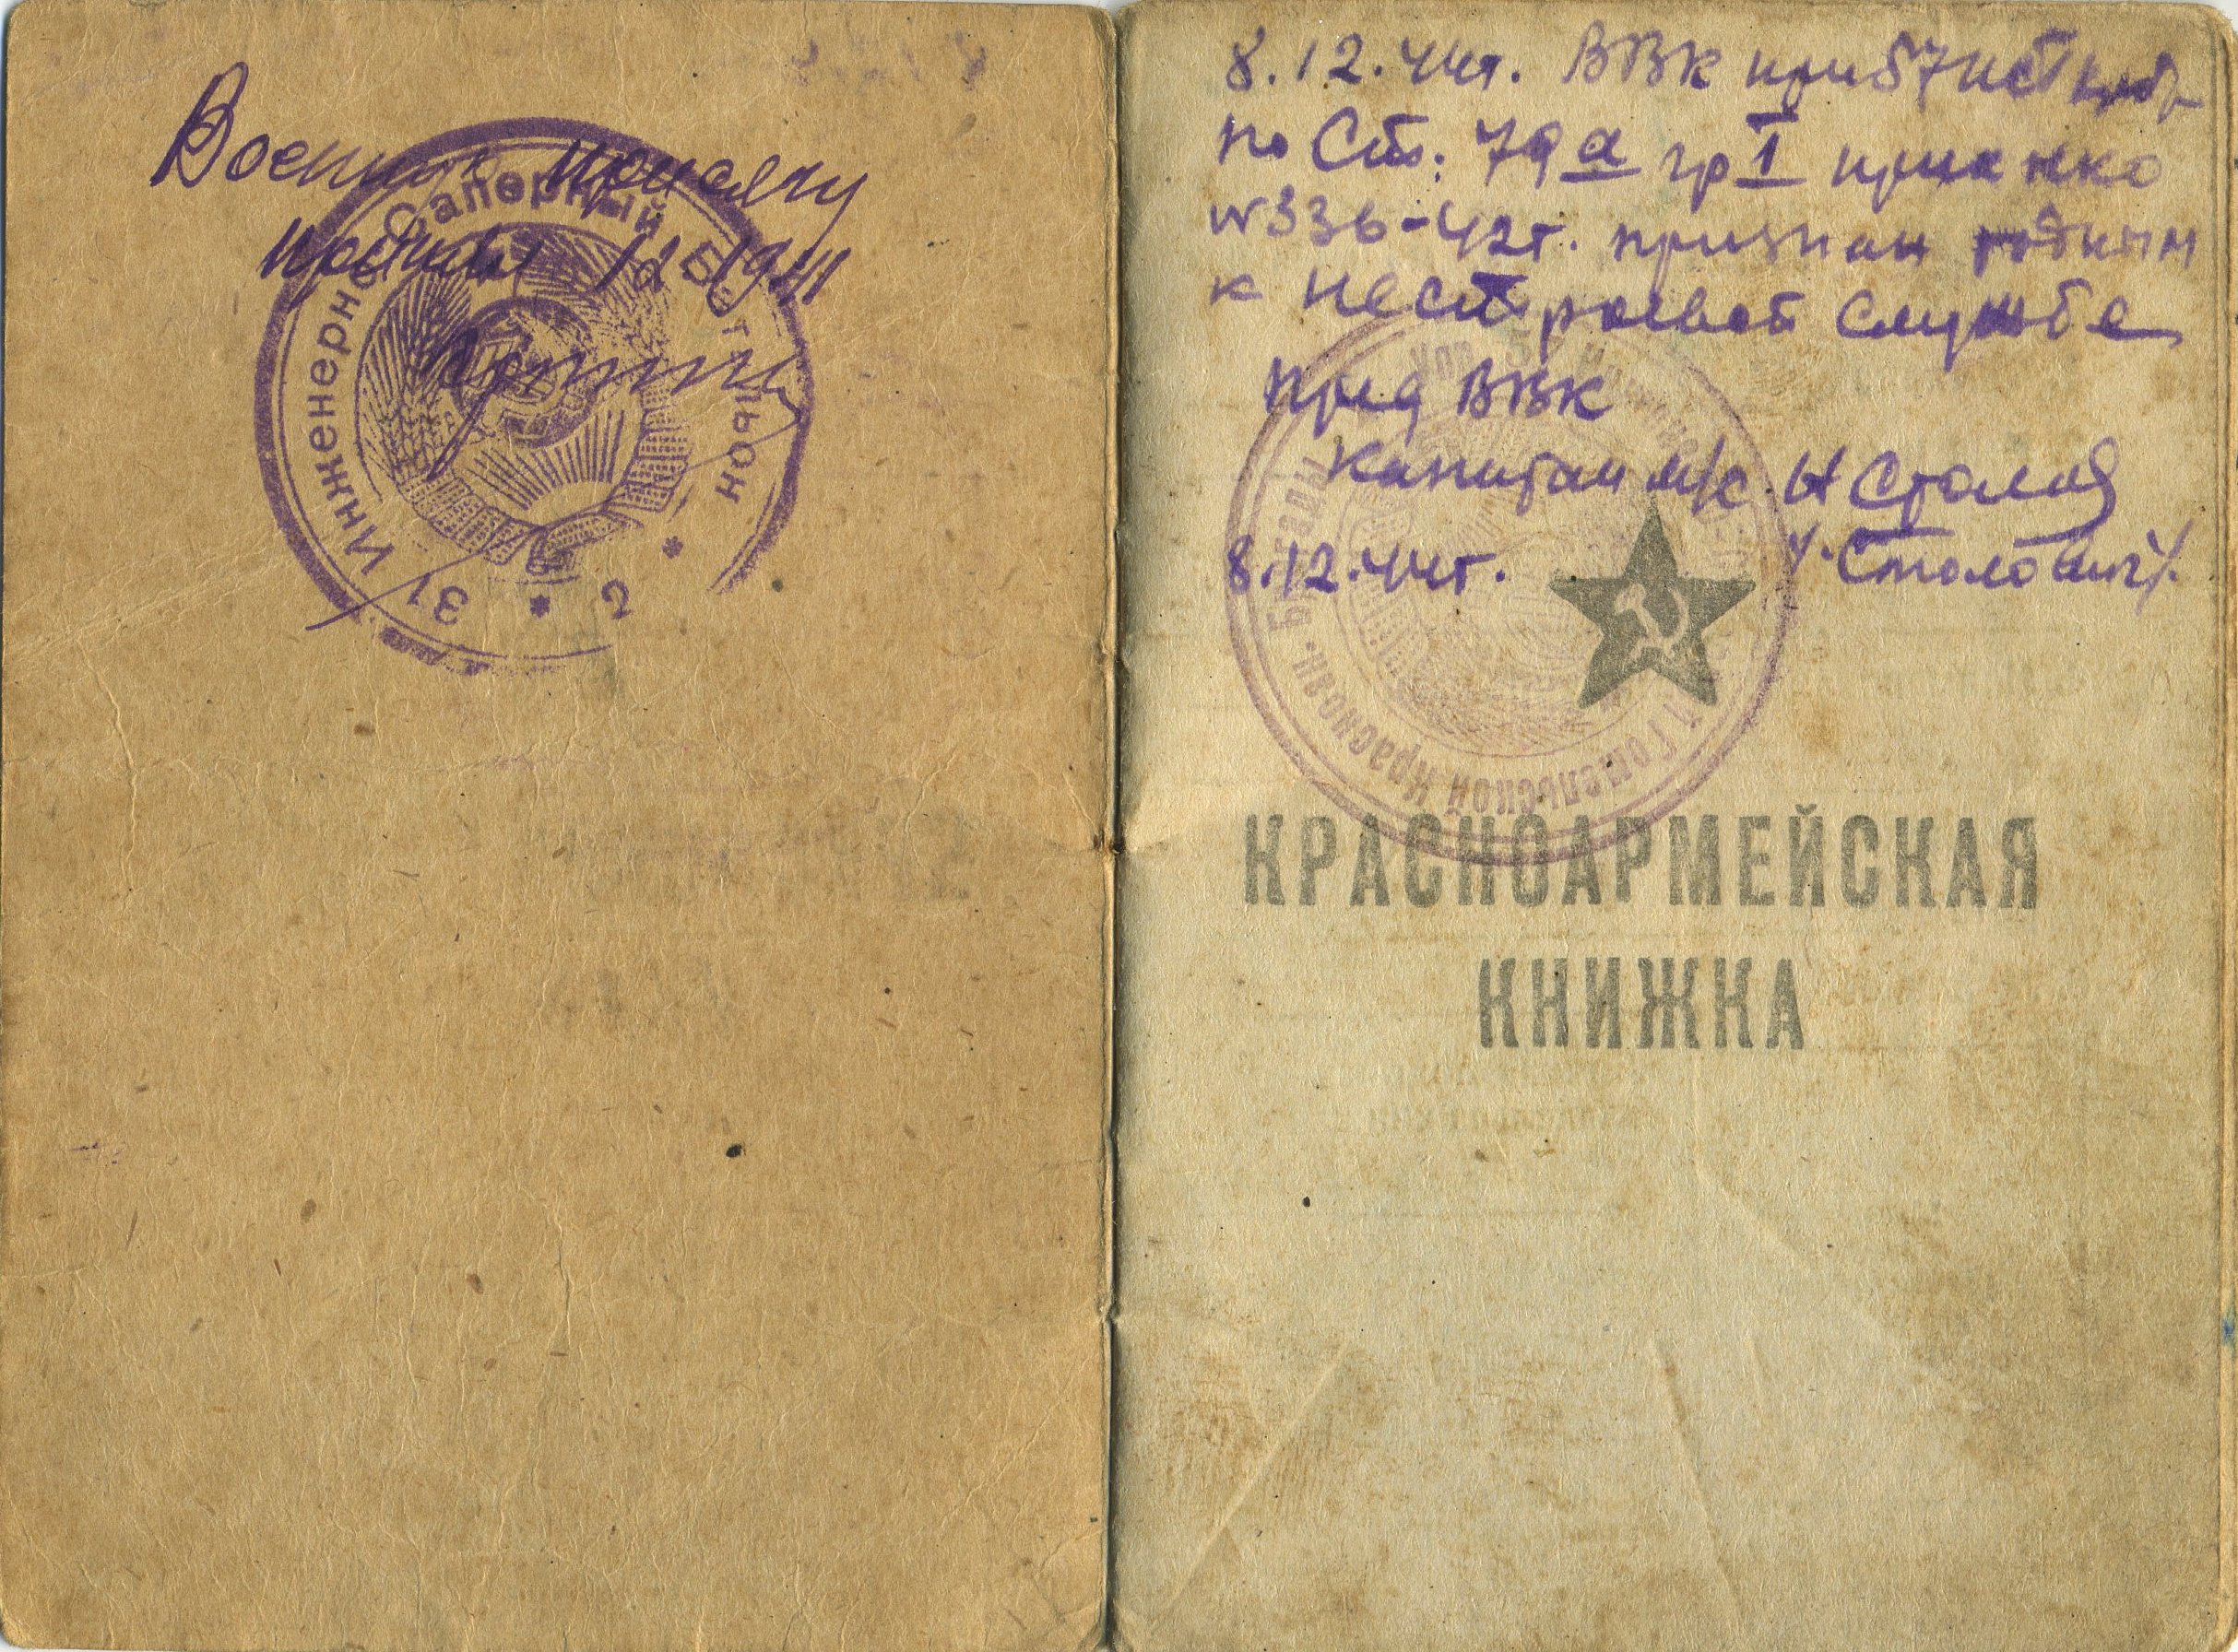 Военную присягу
принял 12 1941
31 Инженерно Саперный Батальон
8.12.44г. ВВК при 57
по Ст. 79 а гр I приказ нко
N 336-42г. признан годным
к нестроевой службе
Пред ВВК
капитан м/с. Н Столов
8.12.44г. /.Столович/.
Гомельской Краснозн. Бригады
КРАСНОАРМЕЙСКАЯ
КНИЖКА